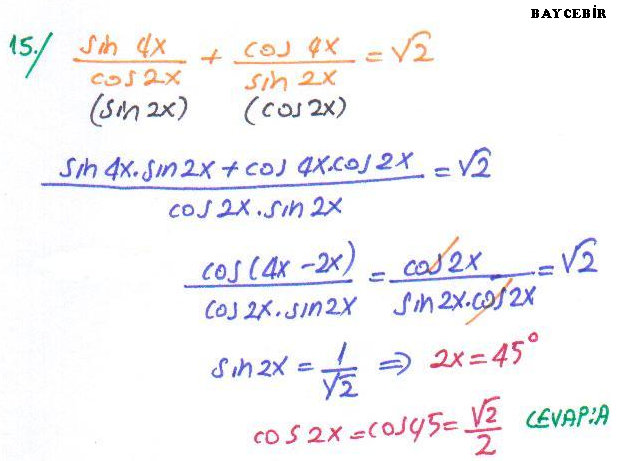 BAYCEBİR
15./ sin 4x / cos 2x + cos 4x / sin 2x = √2
(sin 2x) (cos 2x)
sin 4x.sin 2x + cos 4x.cos 2x / cos 2x.sin 2x = √2
cos(4x - 2x) / cos 2x.sin 2x = cos 2x / sin 2x.cos 2x = √2
sin 2x = 1/√2 ⇒ 2x = 45°
cos 2x = cos 45 = √2/2 CEVAP:A